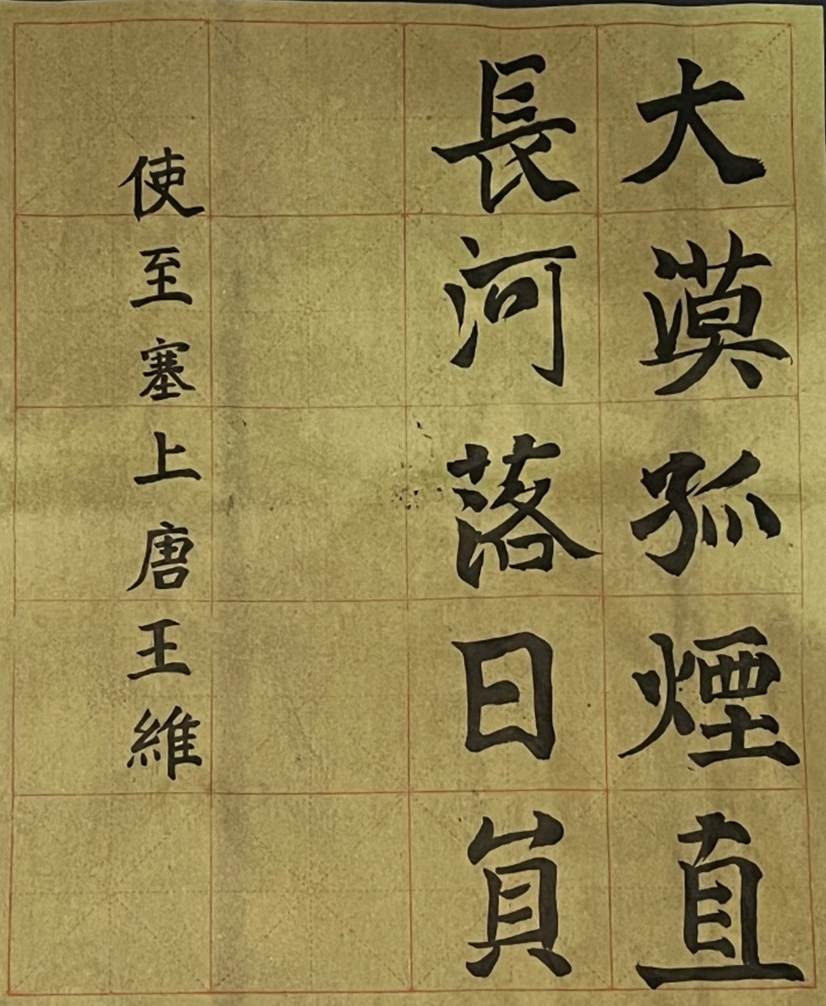 大漠孤煙直
長河落日員
使至塞上唐王維